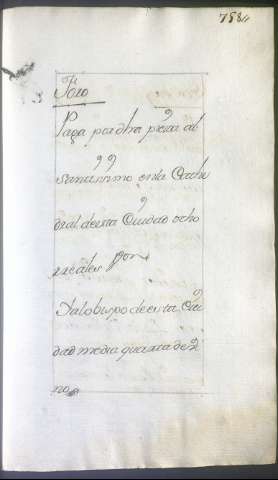 758
Foro
Paga por dha pieza al
santissimo en la Cathe
dral de esta Ciudad ocho
reales
Y al obispo de esta Ciu
dad media quarta de vi
no